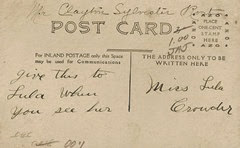 Mr Clayton Sylvester Post
POST CARD
PLACE
ONE CENT
STAMP
HERE
1.00
For INLAND POSTAGE only this Space
may be used for Communications
THE ADDRESS ONLY TO BE
WRITTEN HERE
Give this to
Lula When
You see her
Miss Lula
Crowder